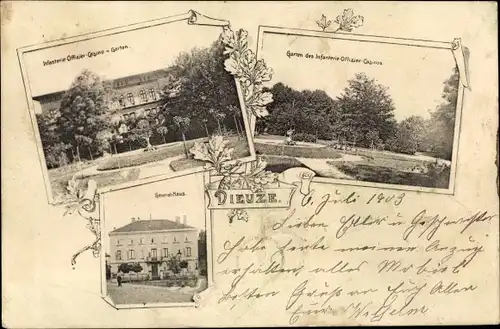 Infanterie-Offizier-Casino u. Garten.
Garten des Infanterie-Offizier-Casinos
General-Haus.
DIEUZE.
6. Juli 1903
Lieben Eltern u Geschwister
Habe heute meinen Anzug
erhalten alles
besten Gruß an Euch Allen
Euer Wilhelm